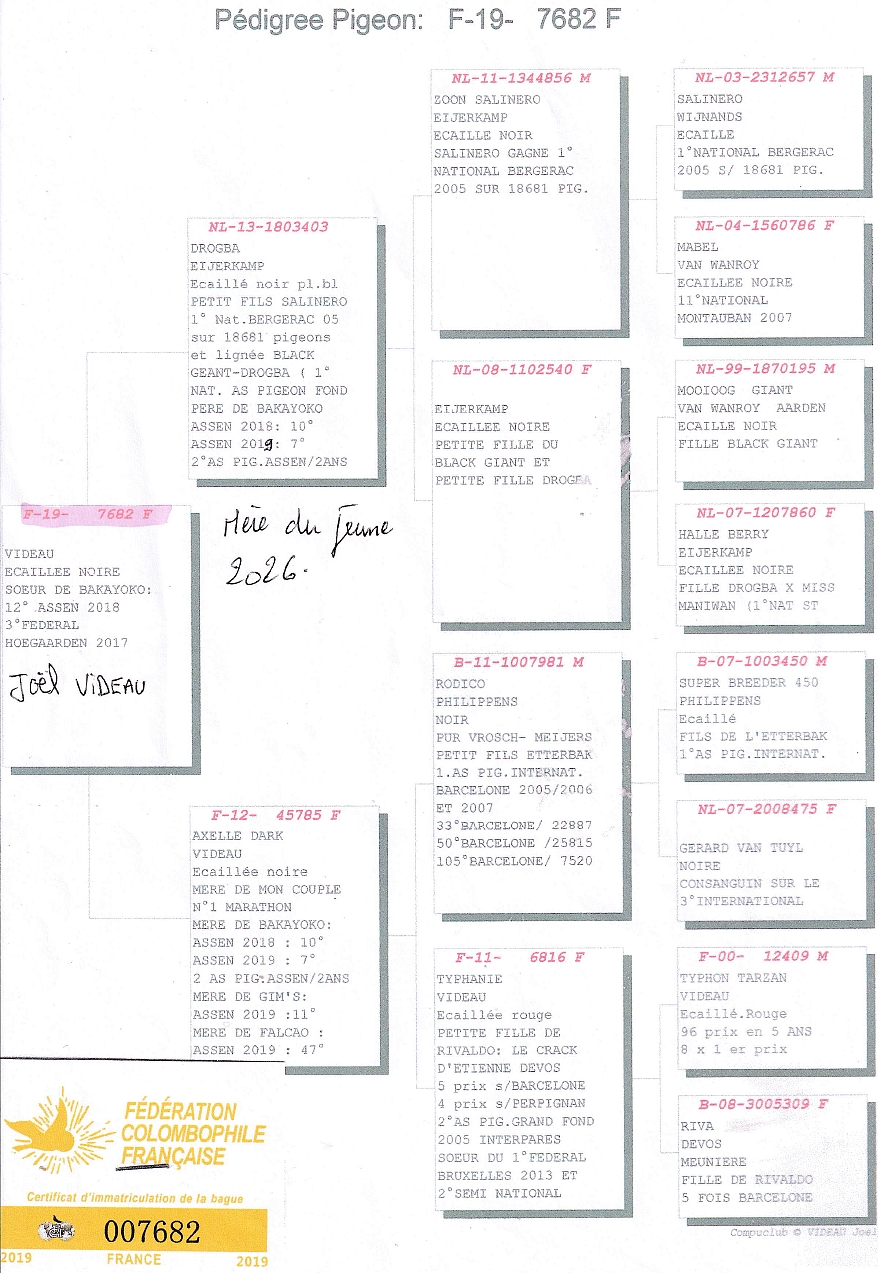 Pédigree Pigeon: F-19- 7682 F
F-19- 7682 F
VIDEAU
ECAILLEE NOIRE
SOEUR DE BAKAYOKO:
12° ASSEN 2018
3°FEDERAL
HOEGAARDEN 2017
Joël VIDEAU
Mère du Jeune
2026.
NL-13-1803403
DROGBA
EIJERKAMP
Ecaillé noir pl.bl
PETIT FILS SALINERO
1° Nat.BERGERAC 05
sur 18681 pigeons
et lignée BLACK
GEANT-DROGBA ( 1°
NAT. AS PIGEON FOND
PERE DE BAKAYOKO
ASSEN 2018: 10°
ASSEN 2019: 7°
2°AS PIG.ASSEN/2ANS
F-12- 45785 F
AXELLE DARK
VIDEAU
Ecaillée noire
MERE DE MON COUPLE
N°1 MARATHON
MERE DE BAKAYOKO:
ASSEN 2018 : 10°
ASSEN 2019 : 7°
2 AS PIG.ASSEN/2ANS
MERE DE GIM'S:
ASSEN 2019 :11°
MERE DE FALCAO :
ASSEN 2019 : 47°
NL-11-1344856 M
ZOON SALINERO
EIJERKAMP
ECAILLE NOIR
SALINERO GAGNE 1°
NATIONAL BERGERAC
2005 SUR 18681 PIG.
NL-08-1102540 F
EIJERKAMP
ECAILLEE NOIRE
PETITE FILLE DU
BLACK GIANT ET
PETITE FILLE DROGBA
B-11-1007981 M
RODICO
PHILIPPENS
NOIR
PUR VROSCH- MEIJERS
PETIT FILS ETTERBAK
1.AS PIG.INTERNAT.
BARCELONE 2005/2006
ET 2007
33°BARCELONE/ 22887
50°BARCELONE /25815
105°BARCELONE/ 7520
F-11- 6816 F
TYPHANIE
VIDEAU
Ecaillée rouge
PETITE FILLE DE
RIVALDO: LE CRACK
D'ETIENNE DEVOS
5 prix s/BARCELONE
4 prix s/PERPIGNAN
2°AS PIG.GRAND FOND
2005 INTERPARES
SOEUR DU 1°FEDERAL
BRUXELLES 2013 ET
2°SEMI NATIONAL
NL-03-2312657 M
SALINERO
WIJNANDS
ECAILLE
1°NATIONAL BERGERAC
2005 S/ 18681 PIG.
NL-04-1560786 F
MABEL
VAN WANROY
ECAILLEE NOIRE
11°NATIONAL
MONTAUBAN 2007
NL-99-1870195 M
MOOIOOG GIANT
VAN WANROY AARDEN
ECAILLE NOIR
FILLE BLACK GIANT
NL-07-1207860 F
HALLE BERRY
EIJERKAMP
ECAILLEE NOIRE
FILLE DROGBA X MISS
MANIWAN (1°NAT ST
B-07-1003450 M
SUPER BREEDER 450
PHILIPPENS
Ecaillé
FILS DE L'ETTERBAK
1°AS PIG.INTERNAT.
NL-07-2008475 F
GERARD VAN TUYL
NOIRE
CONSANGUIN SUR LE
3°INTERNATIONAL
F-00- 12409 M
TYPHON TARZAN
VIDEAU
Ecaillé.Rouge
96 prix en 5 ANS
8 x 1 er prix
B-08-3005309 F
RIVA
DEVOS
MEUNIERE
FILLE DE RIVALDO
5 FOIS BARCELONE
Compuclub © VIDEAU Joël
FÉDÉRATION
COLOMBOPHILE
FRANÇAISE
Certificat d'immatriculation de la bague
007682
2019 FRANCE 2019